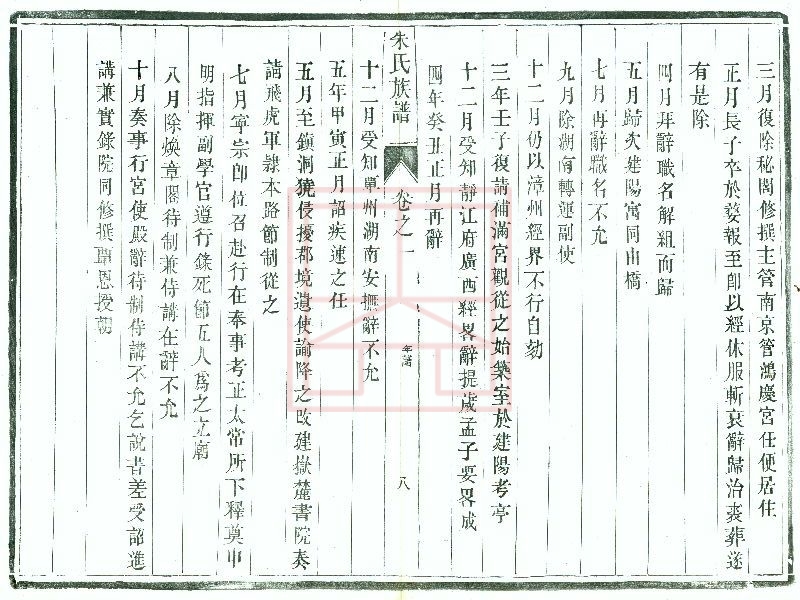 三月復除秘閣修撰主管南京管鴻慶宮任便居住
正月長子卒於婺報至卽以經休服斬衰辭歸治喪葬遂
有是除
四月拜辭職名解組而歸
五月歸次建陽寓同由橋
七月再辭職名不允
九月除湖南轉運副使
十二月仍以漳州經界不行自劾
三年壬子復請補滿宮觀從之始築室於建陽考亭
十二月受知靜江府廣西經畧辭提歲孟子要畧成
四年癸丑正月再辭
朱氏族譜
卷之一
年譜
八
十二月受知單州湖南安撫辭不允
五年甲寅正月詔疾速之任
五月至鎮洞獠侵擾郡境遺使諭降之改建嶽麓書院奏
請飛虎軍隷本路節制從之
七月寧宗卽位召赴行在奉事考正太常所下釋奠申
明指揮副學官遵行錄死節五人爲之立廟
八月除煥章閣待制兼侍講在辭不允
十月奏事行宮使殿辭待制侍講不允乞說書差受詔進
講兼實錄院同修撰覃恩授朝